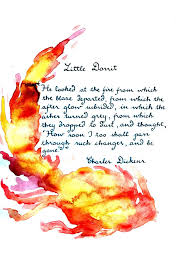 Little Dorrit
He looked at the fire from which
the blaze departed, from which the
after glow subsided, in which the
ashes turned grey, from which
they dropped to dust, and thought,
'How soon I too shall pass
through such changes, and be
gone'
Charles Dickens